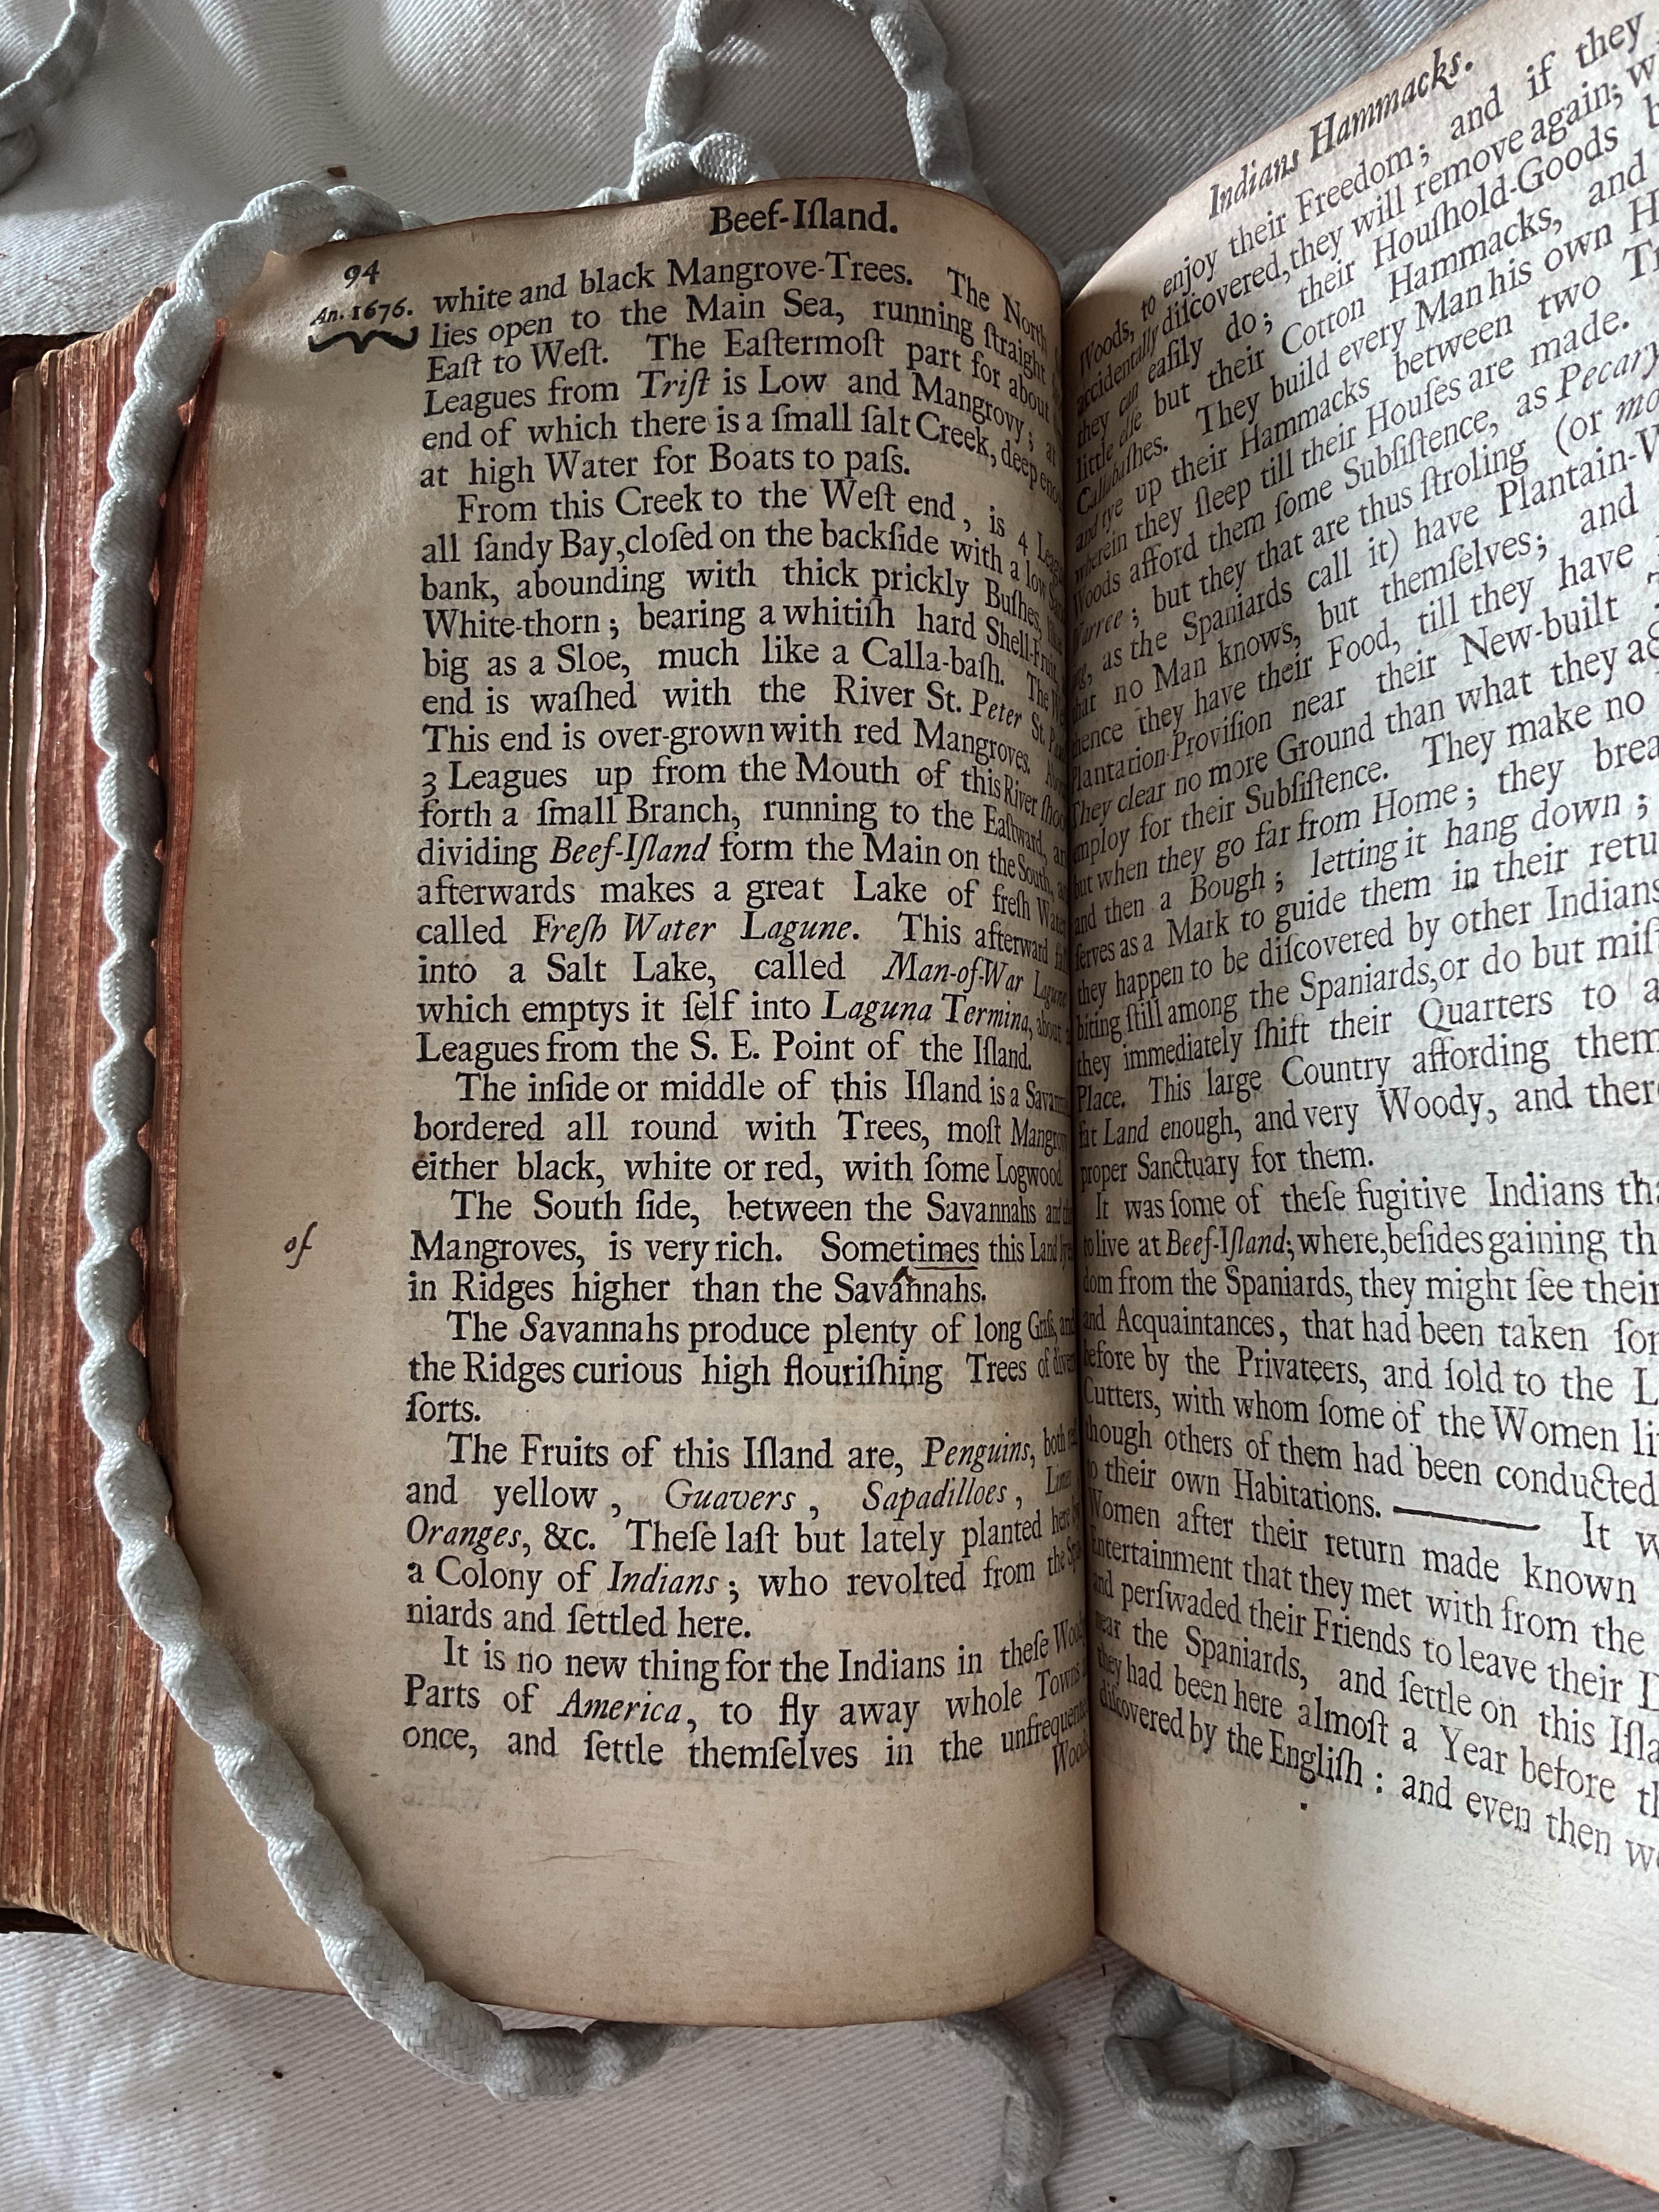 Beef-Iſland.
94
An. 1676.
white and black Mangrove-Trees. The North
lies open to the Main Sea, running ſtraight
Eaſt to Weſt. The Eaſtermoſt part for about
Leagues from Triſt is Low and Mangrovy; at
end of which there is a ſmall ſalt Creek, deep
at high Water for Boats to paſs.
From this Creek to the Weſt end, is 4
all ſandy Bay, cloſed on the backſide with a low
bank, abounding with thick prickly Buſhes, like
White-thorn; bearing a whitiſh hard Shell-Fruit
big as a Sloe, much like a Calla-baſh. The
end is waſhed with the River St. Peter St.
This end is over-grown with red Mangroves.
3 Leagues up from the Mouth of this River
forth a ſmall Branch, running to the Eaſtward,
dividing Beef-Iſland form the Main on the South,
afterwards makes a great Lake of freſh Water
called Freſh Water Lagune. This afterward
into a Salt Lake, called Man-of-War Lagune
which emptys it ſelf into Laguna Termina, about
Leagues from the S. E. Point of the Iſland.
The inſide or middle of this Iſland is a
bordered all round with Trees, moſt
either black, white or red, with ſome Logwood
The South ſide, between the Savannahs and
of
Mangroves, is very rich. Sometimes this Land
in Ridges higher than the Savannahs.
The Savannahs produce plenty of long Graſs, and
the Ridges curious high flouriſhing Trees of
ſorts.
The Fruits of this Iſland are, Penguins, both
and yellow, Guavers, Sapadilloes,
Oranges, &c. Theſe laſt but lately planted here
a Colony of Indians; who revolted from the
niards and ſettled here.
It is no new thing for the Indians in theſe
Parts of America, to fly away whole Towns
once, and ſettle themſelves in the
Indians Hammacks.
Woods, to enjoy their Freedom; and if they
accidentally diſcovered, they will remove again;
they can eaſily do; their Houſhold-Goods
little elſe but their Cotton Hammacks, and
Callabaſhes. They build every Man his own
and tye up their Hammacks between two
wherein they ſleep till their Houſes are made.
Woods afford them ſome Subſiſtence, as Pecary
Warree; but they that are thus ſtroling (or
as the Spaniards call it) have Plantain-
no Man knows, but themſelves; and
they have their Food, till they have
Plantation-Proviſion near their New-built
They clear no more Ground than what they
for their Subſiſtence. They make no
but when they go far from Home; they
and then a Bough; letting it hang down;
ſerves as a Mark to guide them in their
they happen to be diſcovered by other Indians
ſtill among the Spaniards, or do but
they immediately ſhift their Quarters to
Place. This large Country affording them
fit Land enough, and very Woody, and
proper Sanctuary for them.
It was ſome of theſe fugitive Indians
to live at Beef-Iſland; where, beſides gaining
from the Spaniards, they might ſee their
and Acquaintances, that had been taken
before by the Privateers, and ſold to the
Cutters, with whom ſome of the Women
though others of them had been conducted
to their own Habitations. — It
Women after their return made known
Entertainment that they met with from the
and perſwaded their Friends to leave their
near the Spaniards, and ſettle on this
they had been here almoſt a Year before
diſcovered by the Engliſh: and even then